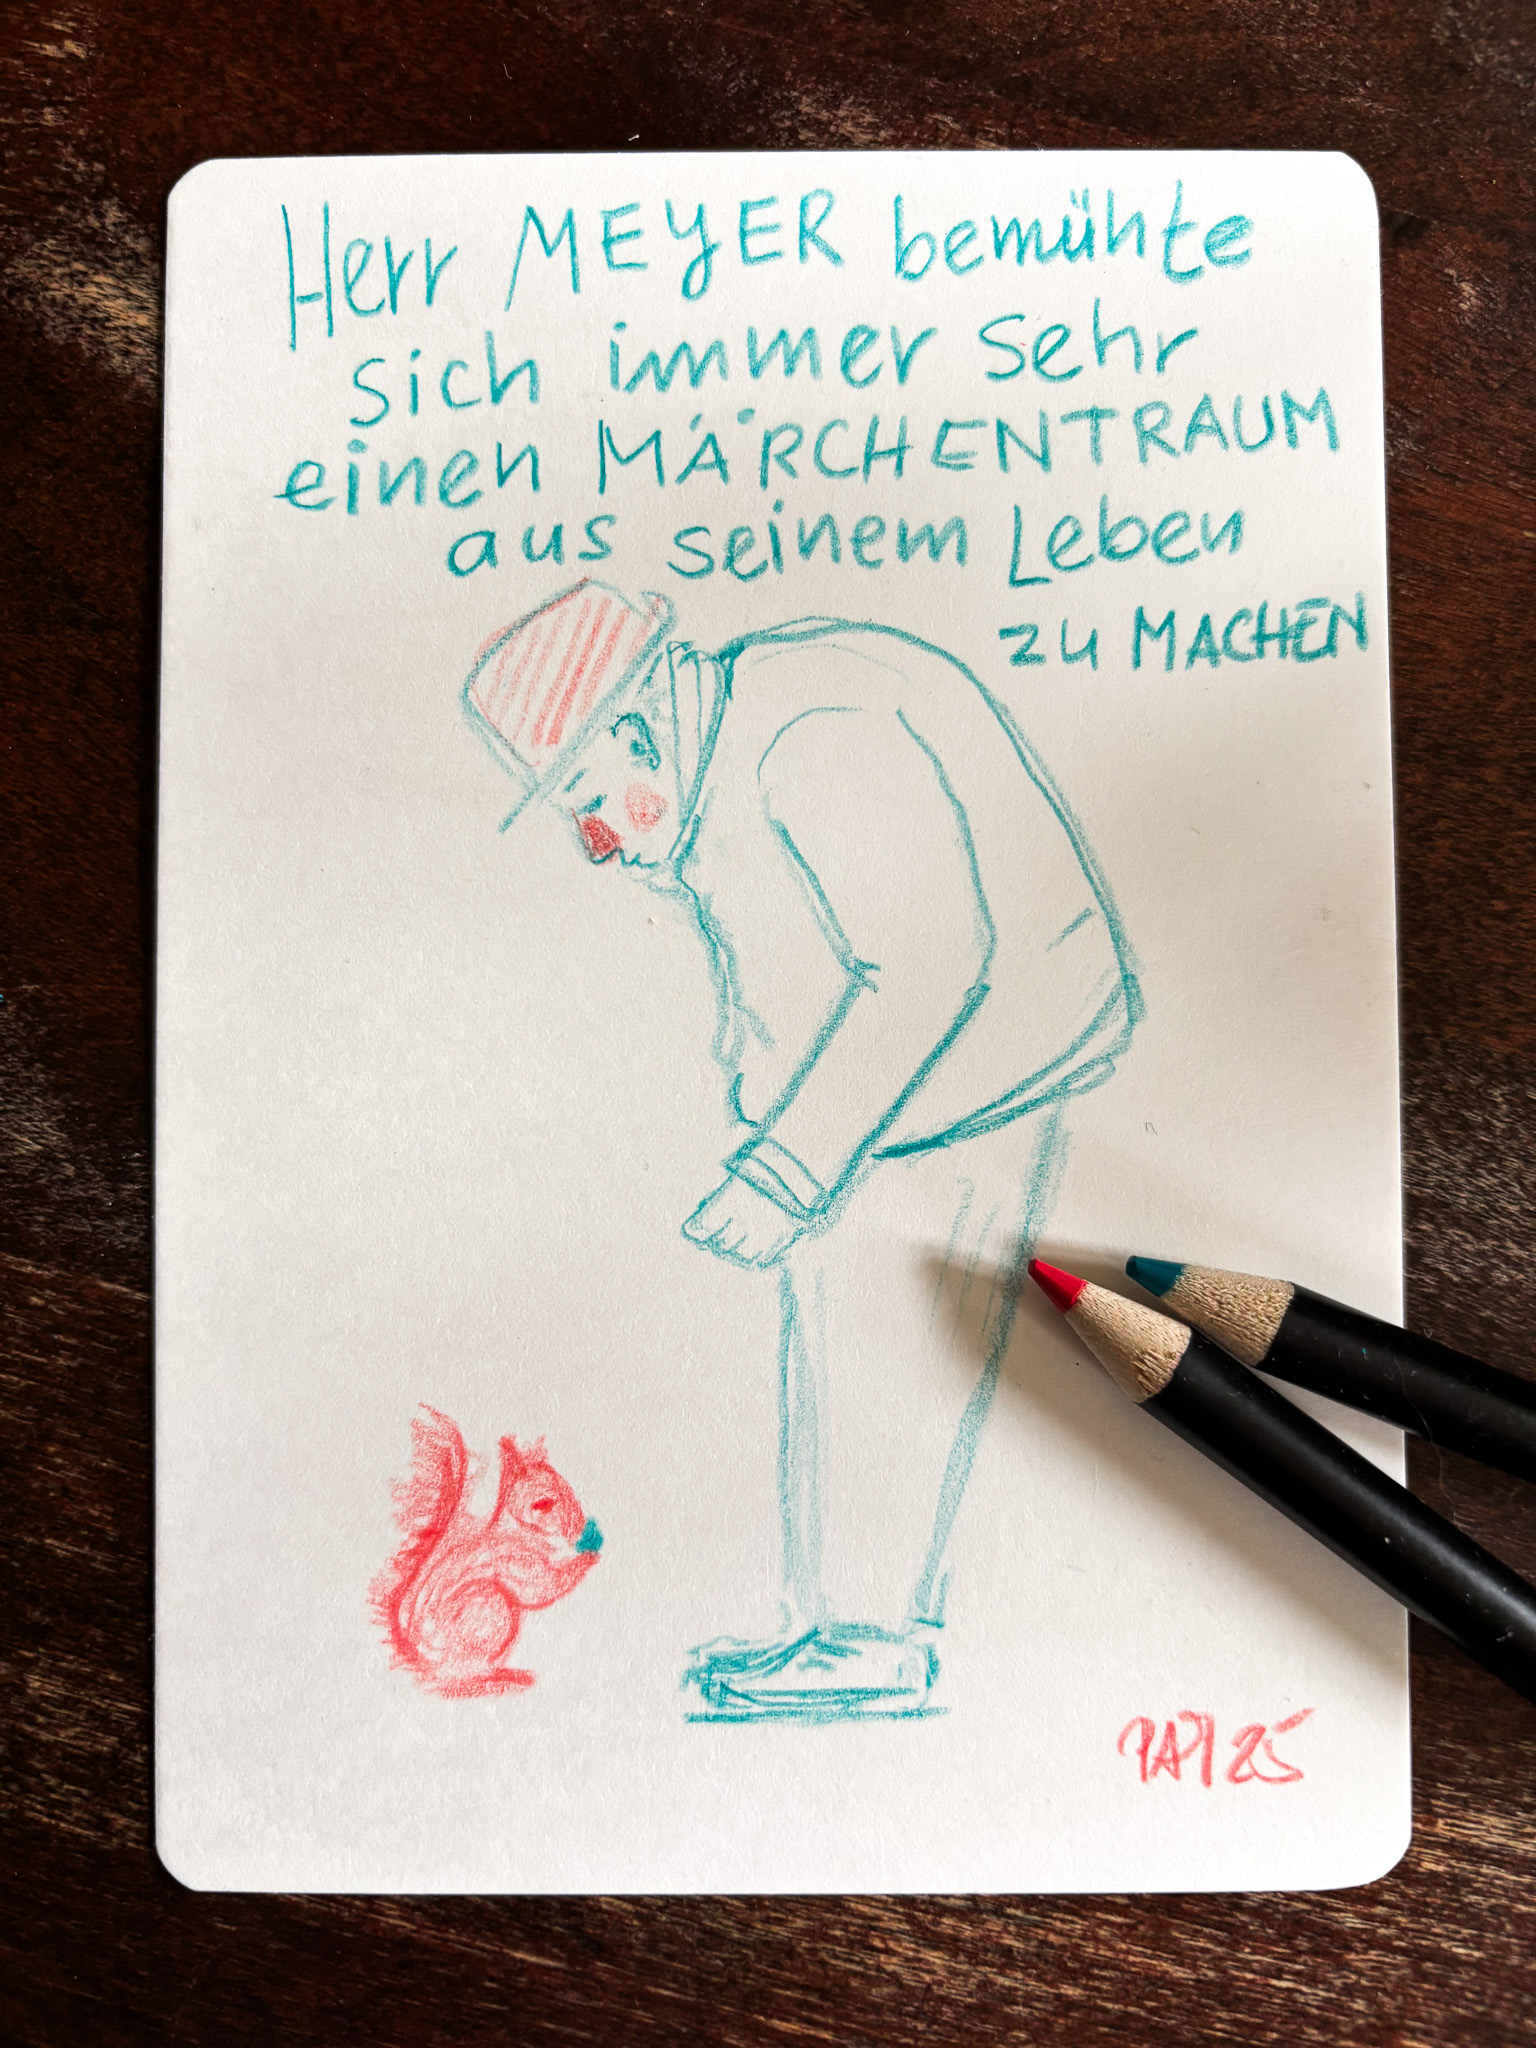 Herr MEYER bemühte
sich immer sehr
einen MÄRCHENTRAUM
aus seinem Leben
zu MACHEN
PAPI 25